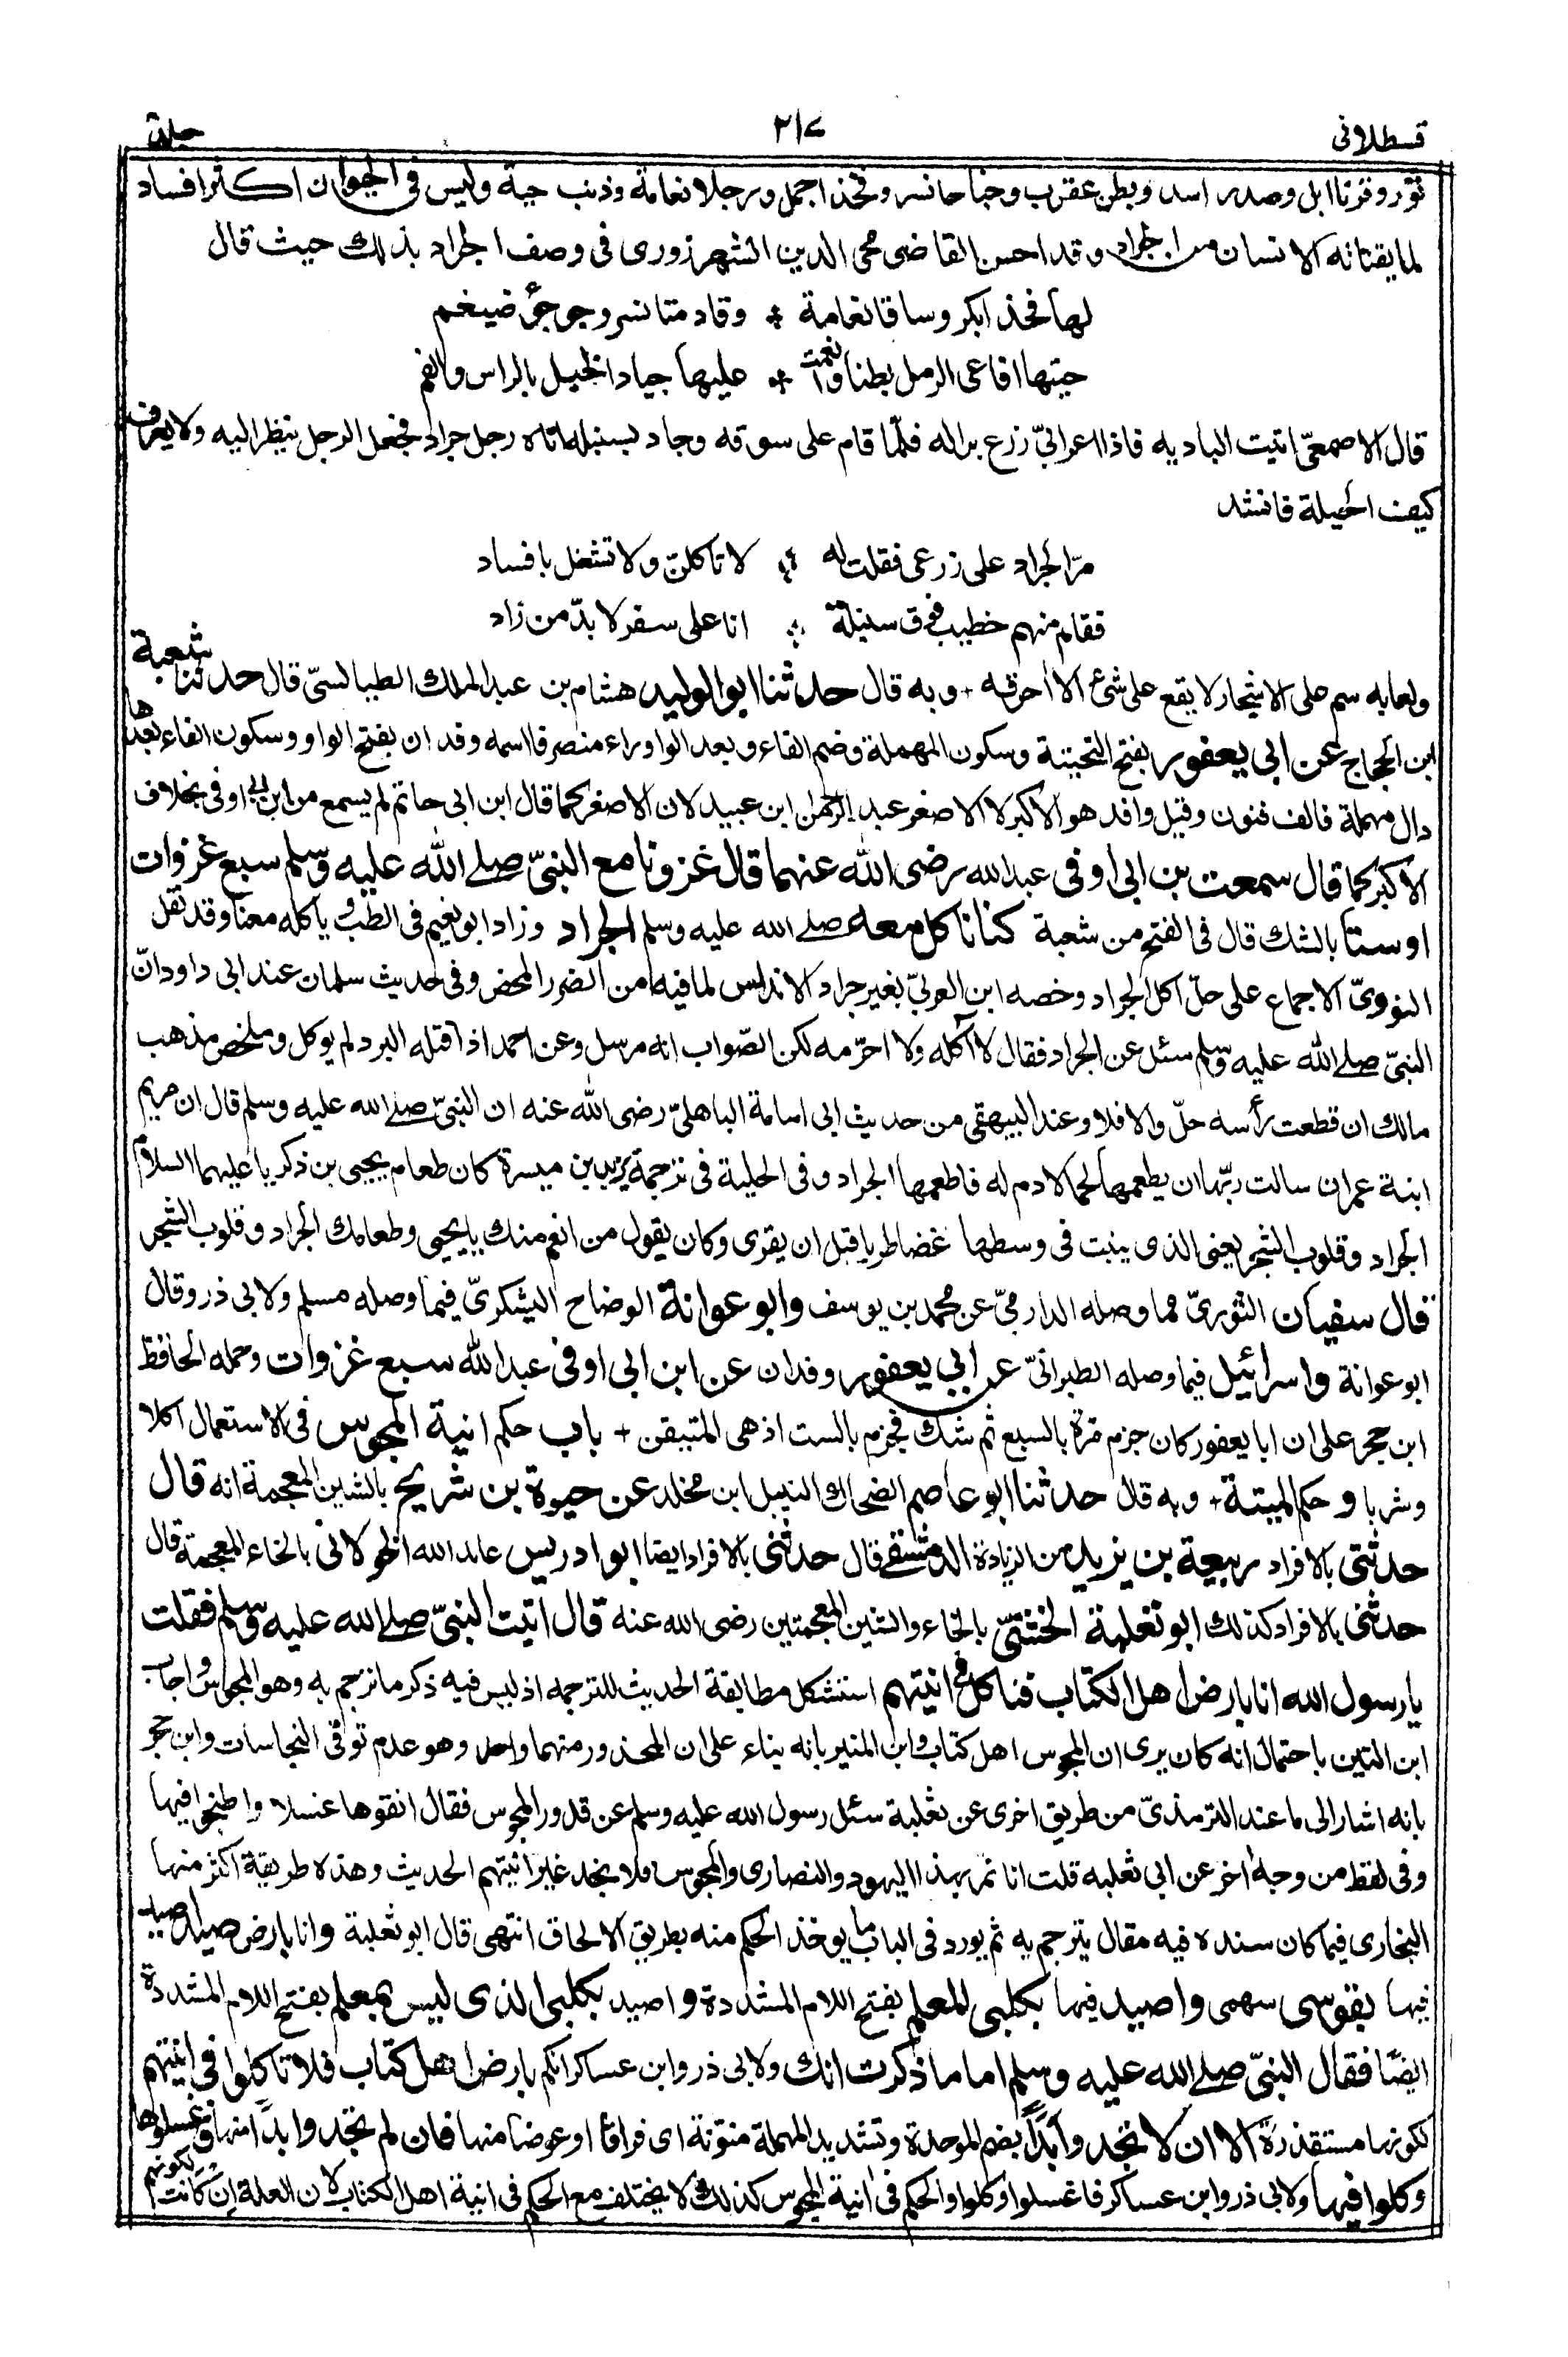 قسطلانی ٢١٧ جلد
ثور وقرنا ابل وصدر اسد وبطن عقرب وجناحا نسر وفخذا جمل ورجلا نعامة وذنب حية وليس فى الحيوان اكثر افساد
لما يقتاته الانسان من الجراد وقد احسن القاضى محى الدين الشهرزورى فى وصف الجراد بذلك حيث قال
لها فخذا بكر وساقا نعامة * وقادمتا نسر وجوجؤ ضيغم
حبتها افاعى الرمل بطنا وانعمت * عليها جياد الخيل بالراس والفم
قال الاصمعىّ اتيت الباديه فاذا اعرابىّ زرع برا له فلمّا قام على سوقه وجاد بسنبله اتاه رجل جراد فجعل الرجل ينظر اليه ولا يعرف
كيف الحيلة فانشد
مرّ الجراد على زرعى فقلت له * لا تاكلنّ ولا تشغل بافساد
فقام منهم خطيب فوق سنبلة * انا على سفر لا بدّ من زاد
ولعابه سم على الاشجار لا يقع على شئ الا احرقه + وبه قال حدثنا ابو الوليد هشام بن عبد الملك الطيالسىّ قال حدثنا شعبة
ابن الحجاج عن ابى يعفور بفتح التحتية وسكون المهملة وضم الفاء وبعد الواو راء منصرفا اسمه وقدان بفتح الواو وسكون الفاء بعدها
دال مهملة فالف فنون وقيل واقد هو الاكبر لا الاصغر عبد الرحمن ابن عبيد لان الاصغر كما قال ابن ابى حاتم لم يسمع من ابن ابى اوفى بخلاف
الاكبر كما قال سمعت بن ابى اوفى عبد الله رضى الله عنهما قال غزونا مع النبىّ صلے الله عليه وسلم سبع غزوات
او ستا بالشك قال فى الفتح من شعبة كنا ناكل معه صلے الله عليه وسلم الجراد وزاد ابو نعيم فى الطب ويأكله معنا وقد نقل
النووىّ الاجماع على حلّ اكل الجراد وخصه ابن العربىّ بغير جراد الاندلس لما فيه من الضرر المحض وفى حديث سلمان عند ابى داود انّ
النبىّ صلے الله عليه وسلم سئل عن الجراد فقال لا آكله ولا احرّمه لكن الصّواب انه مرسل وعن احمد اذا قتله البرد لم يوكل وملخص مذهب
مالك ان قطعت رأسه حلّ والا فلا وعند البيهقى من حديث ابى امامة الباهلىّ رضى الله عنه ان النبىّ صلے الله عليه وسلم قال ان مريم
ابنة عمران سالت ربّها ان يطعمها لحما لا دم له فاطعمها الجراد وفى الحلية فى ترجمة يزيد بن ميسرة كان طعام يحيى بن زكريا عليهما السلام
الجراد وقلوب الشجر يعنى الذى ينبت فى وسطها غضا طريا قبل ان يقوى وكان يقول من انعم منك يا يحيى وطعامك الجراد وقلوب الشجر
قال سفيان الثورىّ مما وصله الدارمىّ عن محمد بن يوسف وابو عوانة الوضاح اليشكرىّ فيما وصله مسلم ولابى ذر وقال
ابو عوانة واسرائيل فيما وصله الطبرانىّ عن ابى يعفور وقدان عن ابن ابى اوفى عبد الله سبع غزوات وحمله الحافظ
ابن حجر على ان ابا يعفور كان جزم مرة بالسبع ثم شك فجزم بالست اذ هى المتيقن + باب حكم انية المجوس فى الاستعمال اكلا
وشربا وحكم الميتة + وبه قال حدثنا ابو عاصم الضحاك النبيل ابن مخلد عن حيوة بن شريح بالشين المعجمة انه قال
حدثنى بالافراد ربيعة بن يزيد من الزيادة الدمشقے قال حدثنى بالافراد ايضا ابو ادريس عايد الله الخولانى بالخاء المعجمة قال
حدثنى بالافراد كذلك ابو ثعلبة الخشنىّ بالخاء والشين المعجمتين رضى الله عنه قال اتيت النبىّ صلے الله عليه وسلم فقلت
يا رسول الله انا بارض اهل الكتاب فناكل فى انيتهم استشكل مطابقة الحديث للترجمه اذ ليس فيه ذكر ما ترجم به وهو المجوس واجاب
ابن التين باحتمال انه كان يرى ان المجوس اهل كتاب وابن المنير بانه بناء على ان المحذور منهما واحد وهو عدم توقى النجاسات وابن حجر
بانه اشار الى ما عند الترمذىّ من طريق اخرى عن ثعلبة سئل رسول الله عليه وسلم عن قدور المجوس فقال انقوها غسلا واطبخوا فيها
وفى لفظ من وجه اخر عن ابى ثعلبه قلت انا نمر بهذا اليهود والنصارى والمجوس فلا نجد غير انيتهم الحديث وهذه طريقة اكثر منها
البخارى فيما كان سنده فيه مقال يترجم به ثم يورد فى الباب ما يوخذ الحكم منه بطريق الالحاق انتهى قال ابو ثعلبة وانا بارض صيد اصيد
فيها بقوسى سهمى واصيد فيها بكلبى المعلم بفتح اللام المشددة واصيد بكلبى الذى ليس بمعلم بفتح اللام المشددة
ايضًا فقال النبىّ صلے الله عليه وسلم اما ما ذكرت انك ولابى ذر وابن عساكر انكم بارض اهل كتاب فلا تاكلوا فى انيتهم
لكونها مستقذرة الا ان لا تجدوا بدًّا بضم الموحدة وتشديد المهملة منوّنة اى فراقا او عوضا منها فان لم تجدوا بدًّا منها فاغسلوها
وكلوا فيها ولابى ذر وابن عساكر فاغسلوا وكلوا والحكم فى انية المجوس كذلك لا يختلف مع الحكم فى انية اهل الكتاب لان العلة ان كانت لكونهم